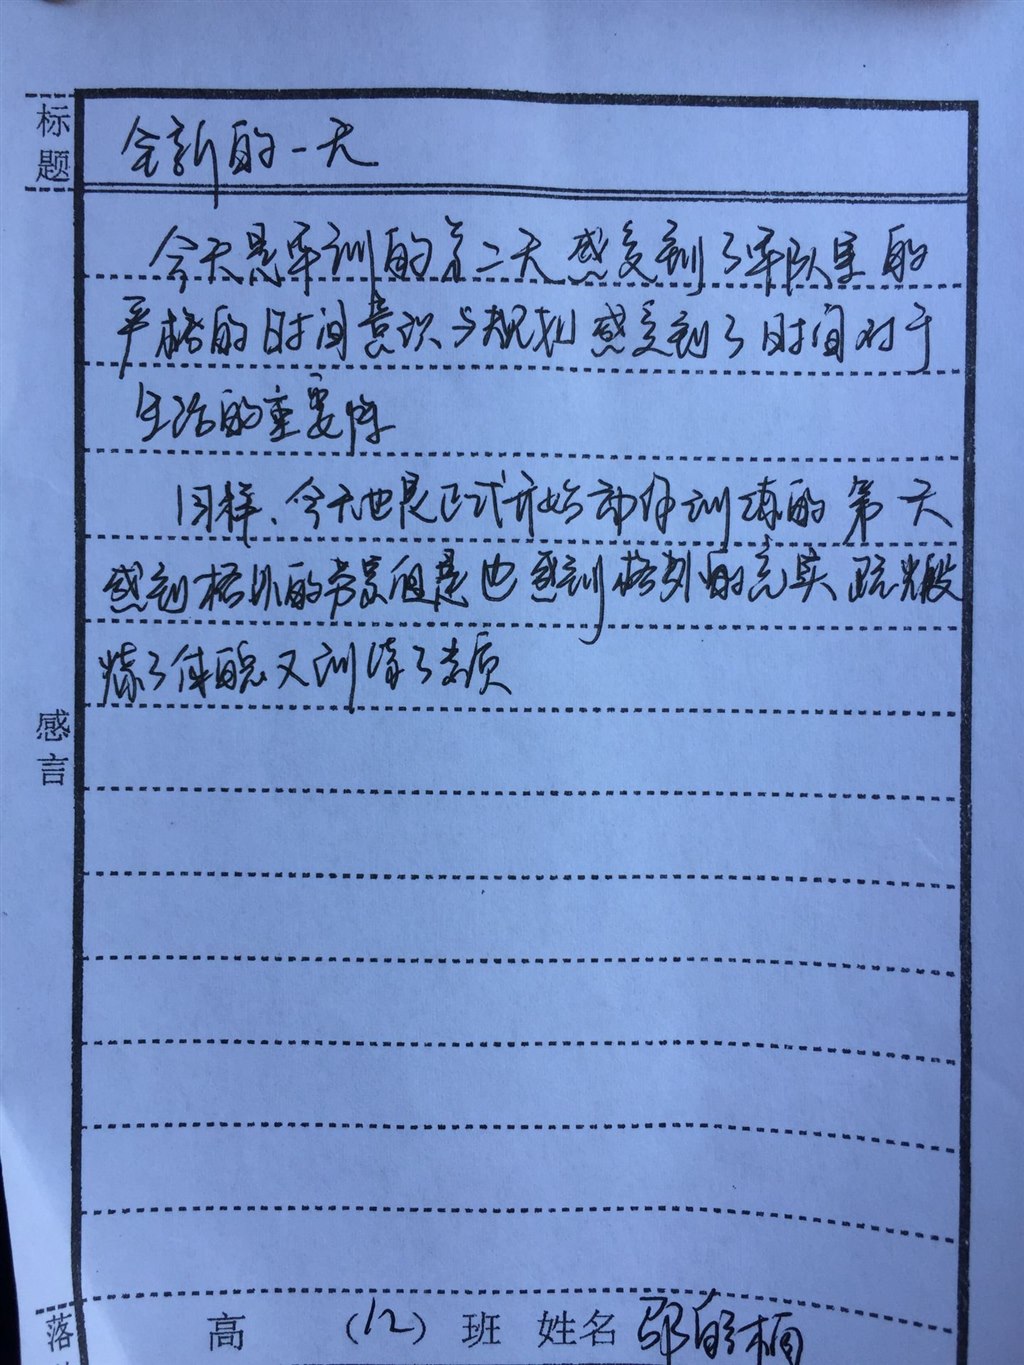 标题
全新的一天
今天是军训的第二天感受到了军队里的
严格的时间意识与规划感受到了时间对于
生活的重要性
同样、今天也是正式开始训练的第一天
感到格外的劳累但是也感到格外的充实既锻
炼了体魄又训练了素质
感言
落
高 (12) 班 姓名